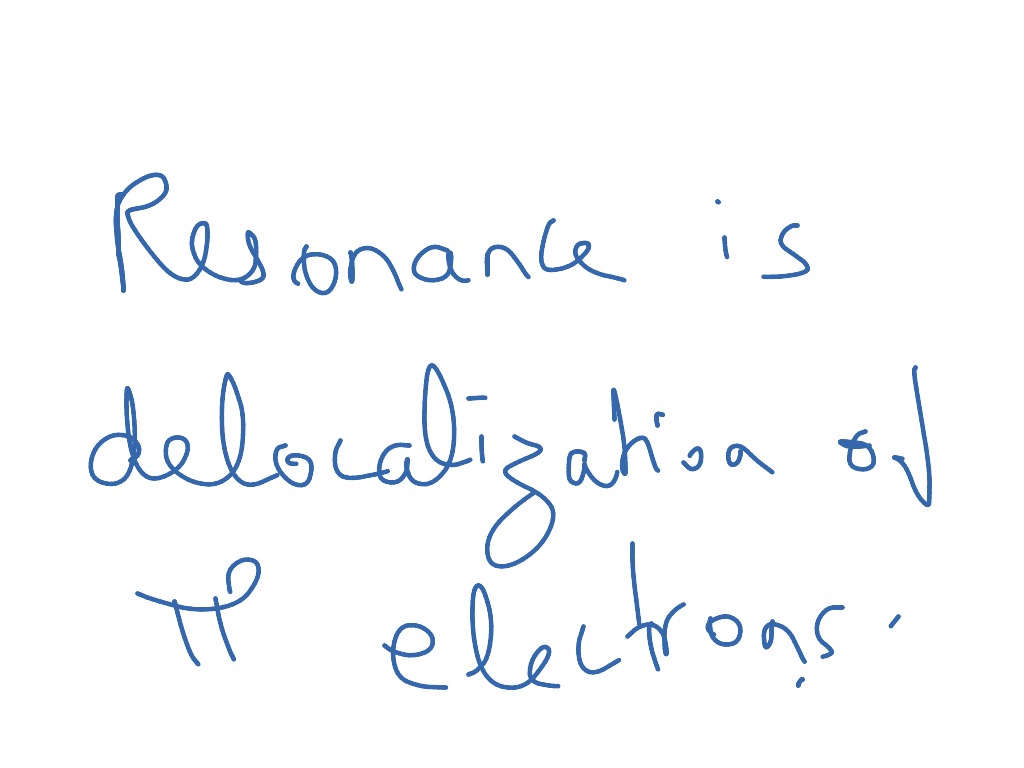 Resonance is
delocalization of
π electrons.